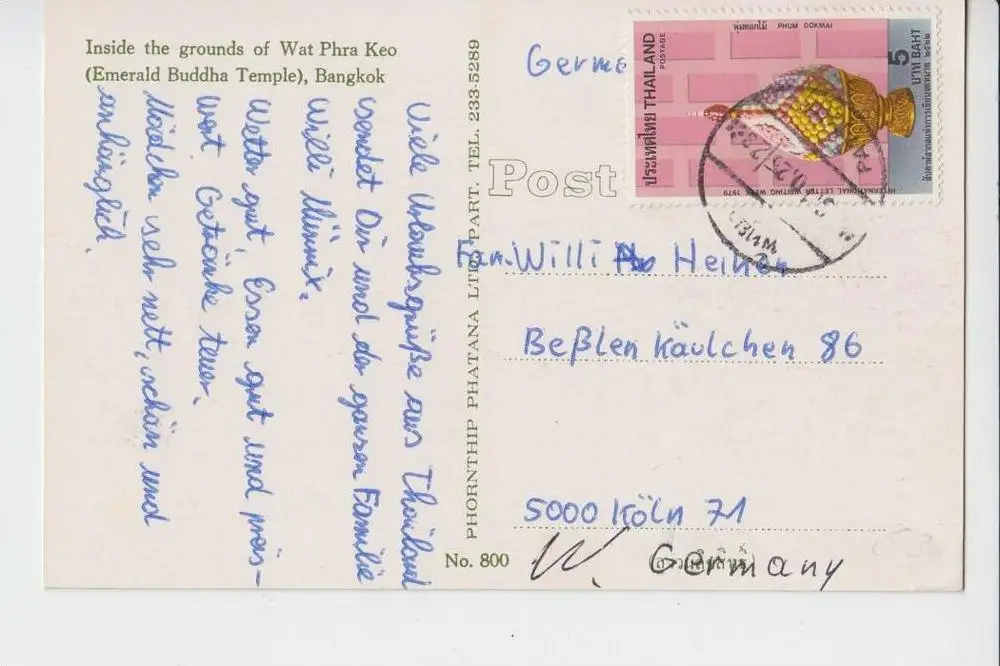 Inside the grounds of Wat Phra Keo
(Emerald Buddha Temple), Bangkok
Viele Urlaubsgrüße aus Thailand
sendet Dir und der ganzen Familie
Willi
Wetter gut, Essen gut und preis-
wert. Getränke teuer.
Mädchen sehr nett, schön und
anhänglich.
PHORNTHIP PHATANA LTD. PART. TEL. 233-5289
No. 800
Post
พุ่มดอกไม้ PHUM DOKMAI
ประเทศไทย THAILAND
POSTAGE
5
บาท BAHT
INTERNATIONAL LETTER WRITING WEEK 1979
Fam. Willi Heinen
Beßlen Käulchen 86
5000 Köln 71
W. Germany